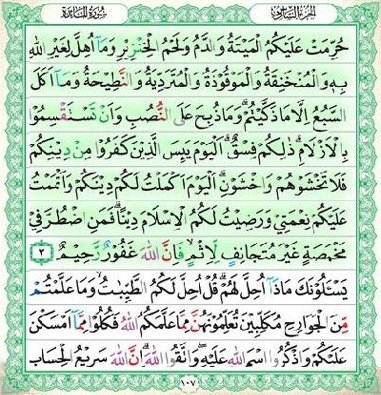 الجزء السادس سورة المائدة
حُرِّمَتْ عَلَيْكُمُ الْمَيْتَةُ وَالدَّمُ وَلَحْمُ الْخِنْزِيْرِ وَمَآ اُهِلَّ لِغَيْرِ اللّٰهِ
بِهٖ وَالْمُنْخَنِقَةُ وَالْمَوْقُوْذَةُ وَالْمُتَرَدِّيَةُ وَالنَّطِيْحَةُ وَمَآ اَكَلَ
السَّبُعُ اِلَّا مَا ذَكَّيْتُمْ وَمَا ذُبِحَ عَلَى النُّصُبِ وَاَنْ تَسْتَقْسِمُوْا
بِالْاَزْلَامِ ذٰلِكُمْ فِسْقٌ اَلْيَوْمَ يَىِٕسَ الَّذِيْنَ كَفَرُوْا مِنْ دِيْنِكُمْ
فَلَا تَخْشَوْهُمْ وَاخْشَوْنِ اَلْيَوْمَ اَكْمَلْتُ لَكُمْ دِيْنَكُمْ وَاَتْمَمْتُ
عَلَيْكُمْ نِعْمَتِيْ وَرَضِيْتُ لَكُمُ الْاِسْلَامَ دِيْنًا فَمَنِ اضْطُرَّ فِيْ
مَخْمَصَةٍ غَيْرَ مُتَجَانِفٍ لِّاِثْمٍ فَاِنَّ اللّٰهَ غَفُوْرٌ رَّحِيْمٌ ٣
يَسْـَٔلُوْنَكَ مَاذَآ اُحِلَّ لَهُمْ قُلْ اُحِلَّ لَكُمُ الطَّيِّبٰتُ وَمَا عَلَّمْتُمْ
مِّنَ الْجَوَارِحِ مُكَلِّبِيْنَ تُعَلِّمُوْنَهُنَّ مِمَّا عَلَّمَكُمُ اللّٰهُ فَكُلُوْا مِمَّآ اَمْسَكْنَ
عَلَيْكُمْ وَاذْكُرُوا اسْمَ اللّٰهِ عَلَيْهِ وَاتَّقُوا اللّٰهَ اِنَّ اللّٰهَ سَرِيْعُ الْحِسَابِ
١٠٧